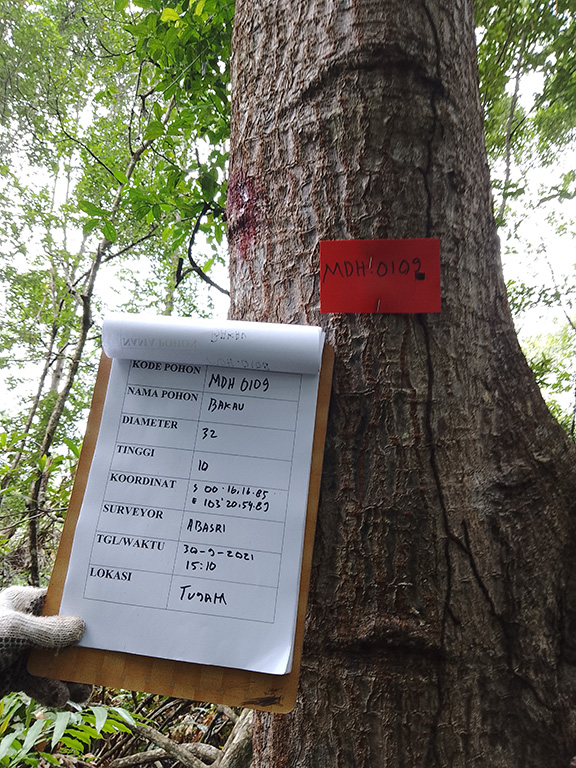 MDH 0109
KODE POHON MDH 0109
NAMA POHON BAKAU
DIAMETER 32
TINGGI 10
KOORDINAT S 00.16.16.85
E 103°20.54.89
SURVEYOR ABASRI
TGL/WAKTU 30-9-2021
15:10
LOKASI